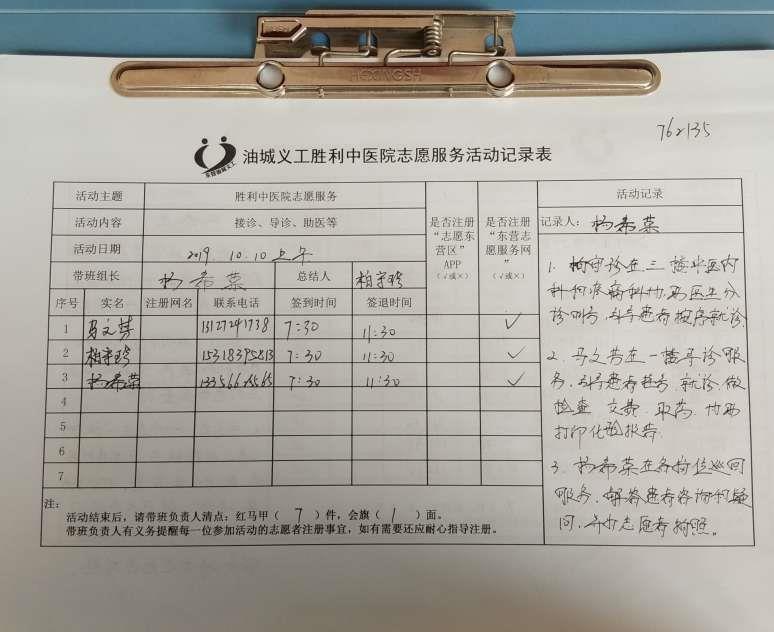 HCXINGSH
762135
东营油城义工
油城义工胜利中医院志愿服务活动记录表
活动主题 胜利中医院志愿服务 是否注册“志愿东营区”APP（√或×） 是否注册“东营志愿服务网”（√或×） 活动记录
活动内容 接诊、导诊、助医等
记录人：杨希荣
活动日期 2019.10.10上午
带班组长 杨希荣 总结人 柏守玲
序号 实名 注册网名 联系电话 签到时间 签退时间
1 马文芳 13127241738 7:30 11:30 ✓
2 柏守玲 15318395813 7:30 11:30 ✓
3 杨希荣 7:30 11:30 ✓
4
5
6
7
1. 柏守诊在三楼中医内
科 协助医生分
诊叫号,引导患者按序就诊.
2. 马文芳在一楼导诊服
务.引导患者挂号.就诊.做
检查 交费.取药.协助
打印化验报告.
3. 杨希荣在各岗位巡回
服务.解答患者咨询和疑
问.并为志愿者拍照。
注：
活动结束后，请带班负责人清点：红马甲（ 7 ）件，会旗（ 1 ）面。
带班负责人有义务提醒每一位参加活动的志愿者注册事宜，如有需要还应耐心指导注册。